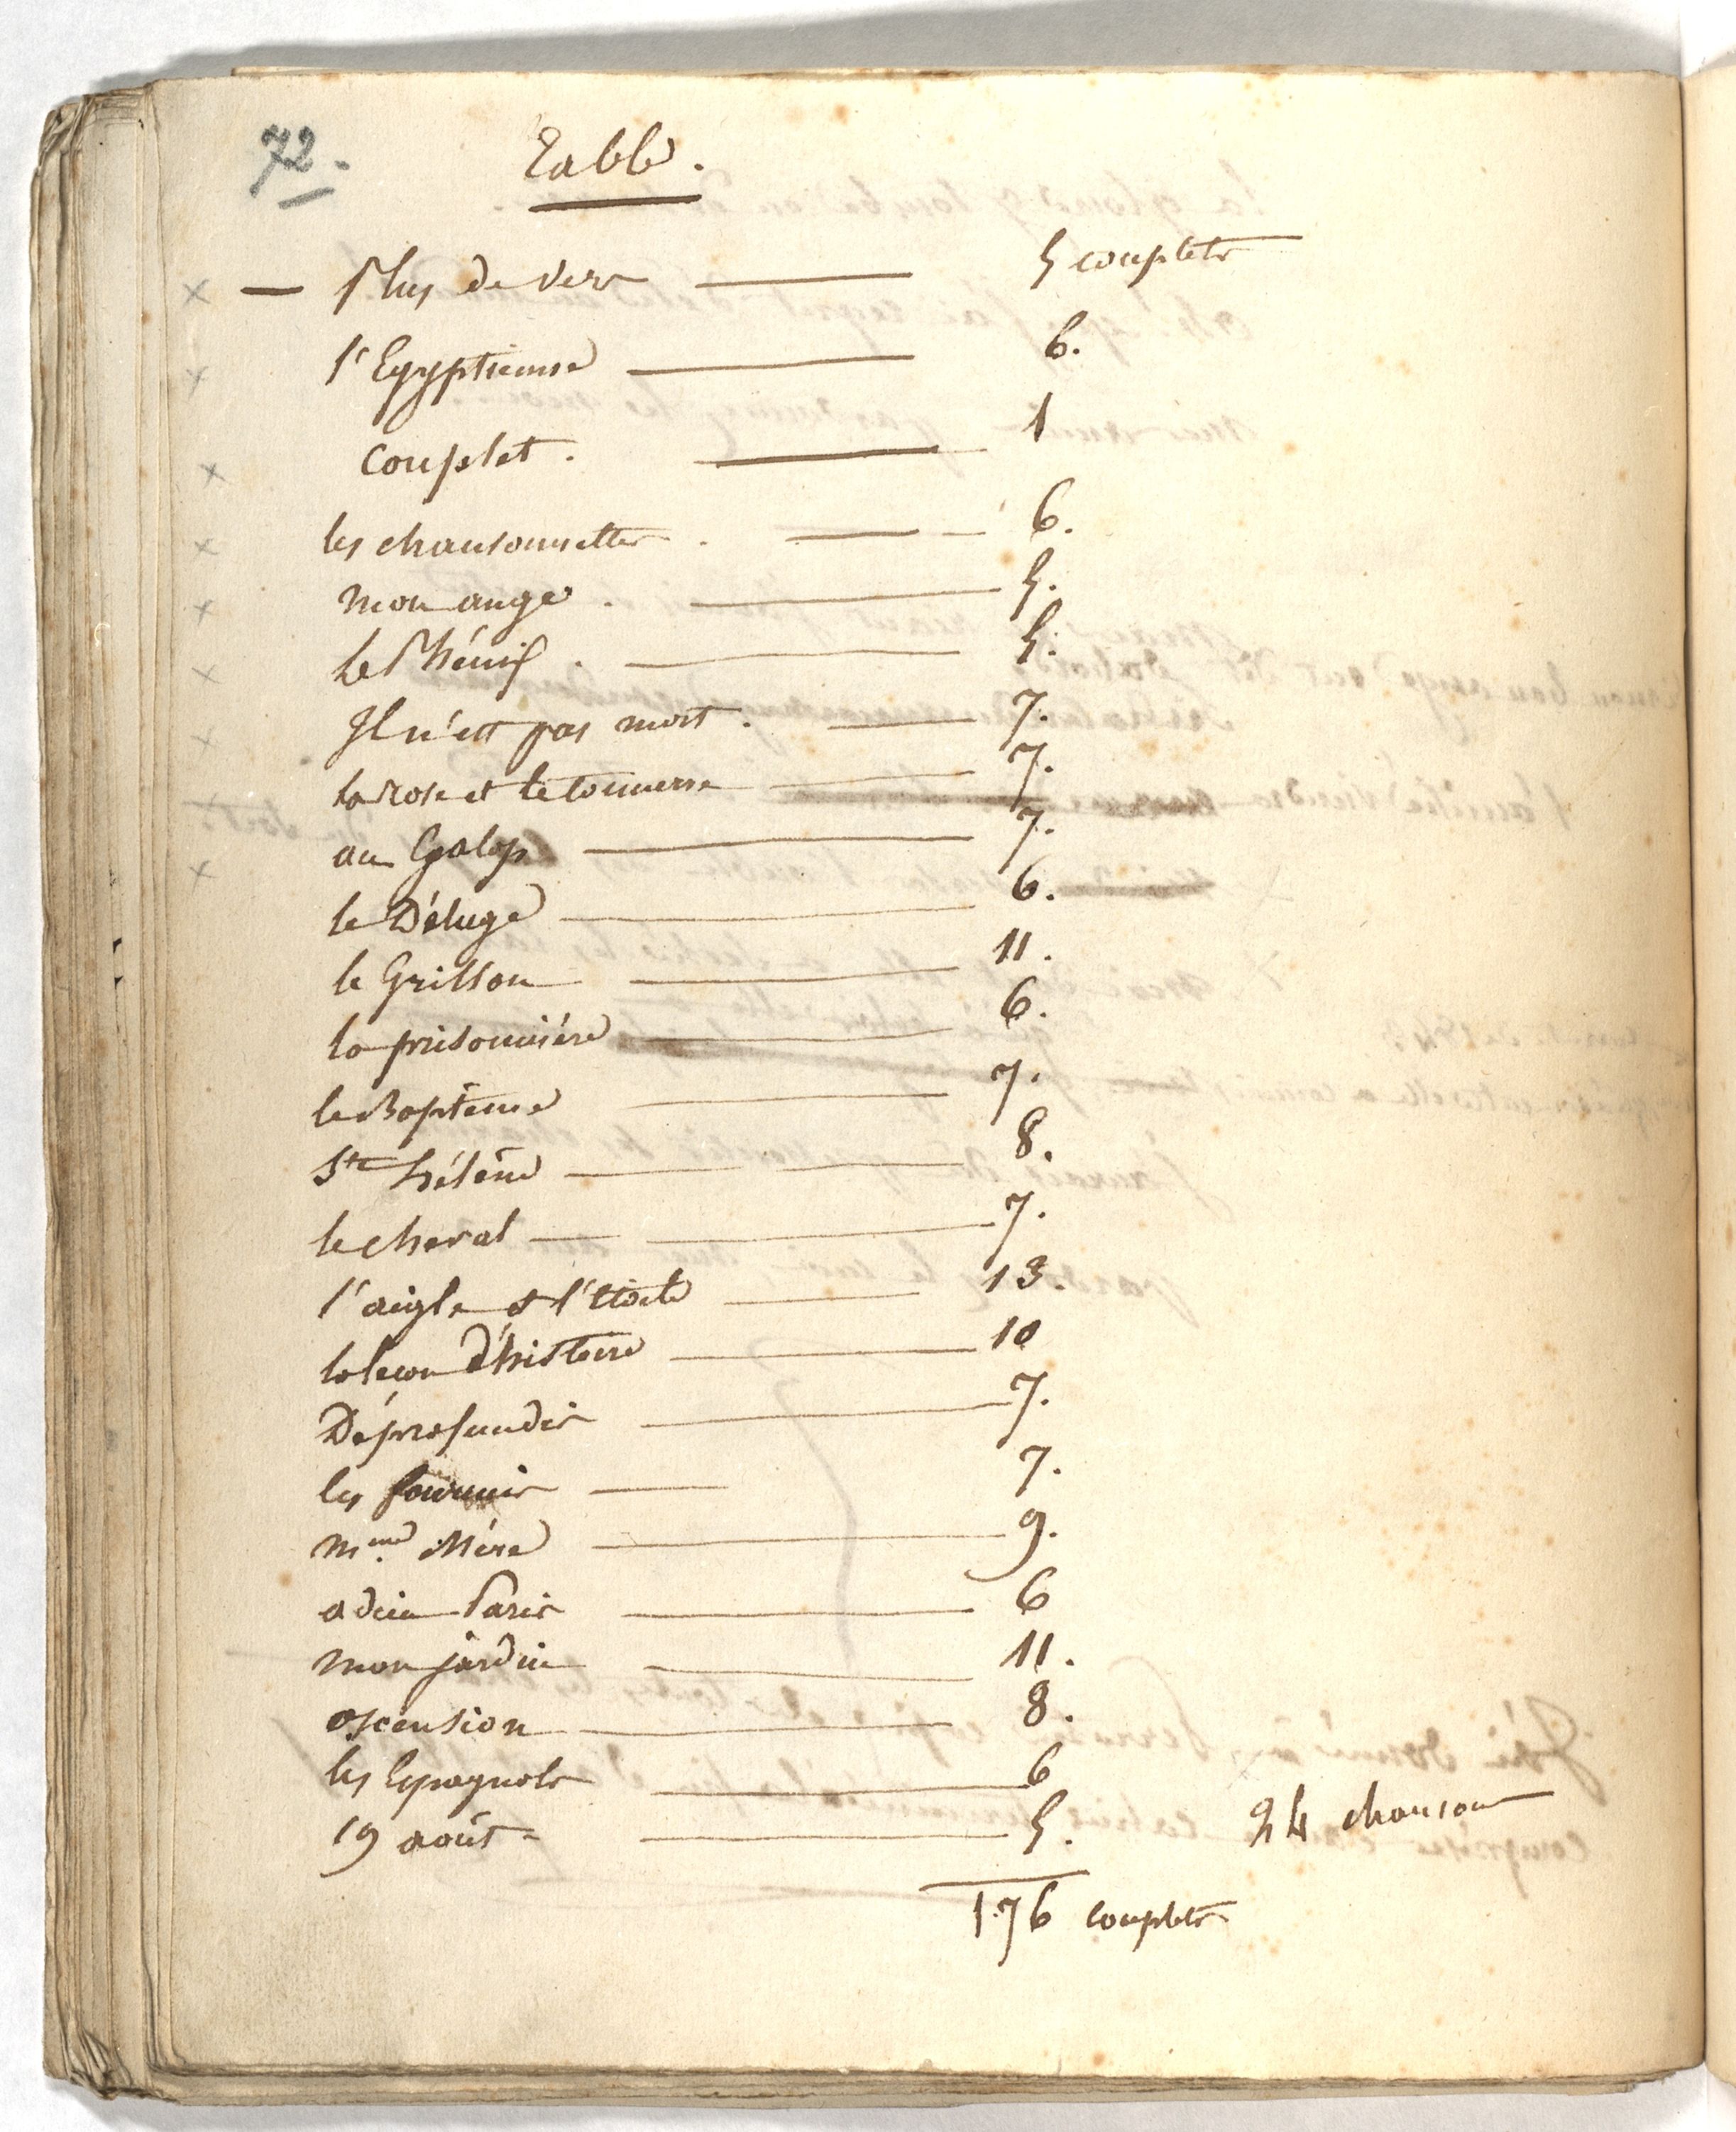 72.
Table.
× — Plus de vers —— 5 couplets
× l'Egyptienne —— 6.
× Couplet. —— 1
× les chansonnettes. —— 6.
× mon ange. —— 5.
× le Phénix. —— 5.
× Il n'est pas mort. —— 7.
× la rose et le tonnerre —— 7.
× au Galop —— 7.
le Déluge —— 6.
le Grillon —— 11.
la prisonnière —— 6.
le Baptême —— 7.
Ste hélène —— 8.
le cheval —— 7.
l'aigle et l'étoile —— 13.
la leçon d'histoire —— 10
Deprofundis —— 7.
les fourmis —— 7.
Mme Mère —— 9.
adieu Paris —— 6
mon jardin —— 11.
ascension —— 8.
les Espagnols —— 6
19 août —— 5.
24 chansons
176 couplets